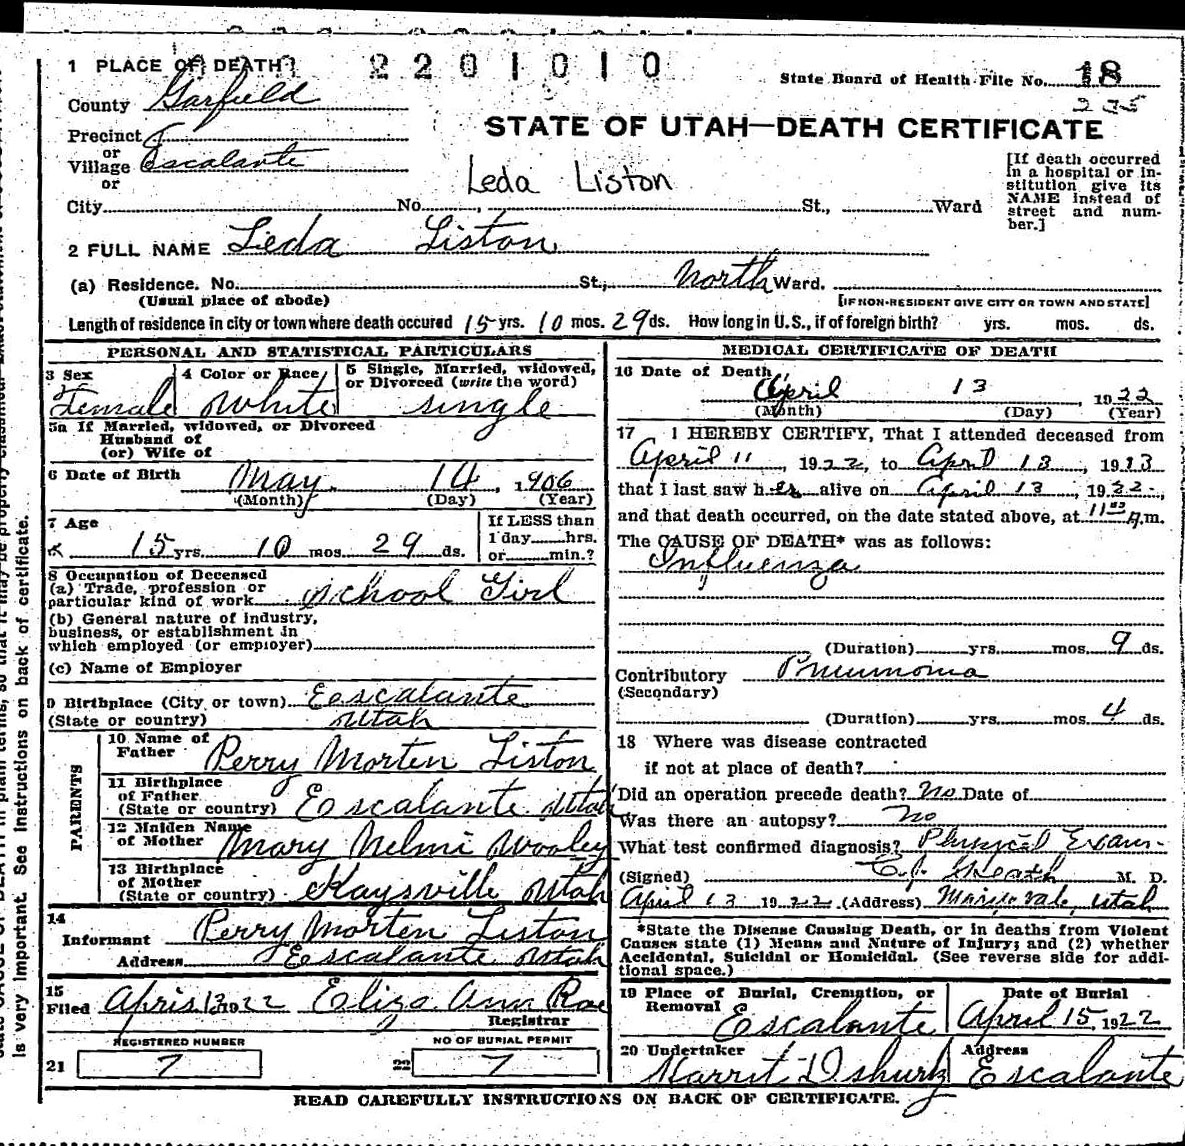 1 PLACE OF DEATH
2201010
State Board of Health File No. 18
235
County Garfield
STATE OF UTAH—DEATH CERTIFICATE
Precinct
or
Village Escalante
or
Leda Liston
[If death occurred in a hospital or institution give its NAME instead of street and number.]
City No. St., Ward
2 FULL NAME Leda Liston
(a) Residence. No. St., North Ward.
(Usual place of abode)
[IF NON-RESIDENT GIVE CITY OR TOWN AND STATE]
Length of residence in city or town where death occured 15 yrs. 10 mos. 29 ds. How long in U.S., if of foreign birth? yrs. mos. ds.
PERSONAL AND STATISTICAL PARTICULARS
3 Sex 4 Color or Race 5 Single, Married, widowed,
or Divorced (write the word)
Female White single
5a If Married, widowed, or Divorced
Husband of
(or) Wife of
6 Date of Birth May 14, 1906
(Month) (Day) (Year)
7 Age
15 yrs. 10 mos. 29 ds.
If LESS than
1 day hrs.
or min.?
8 Occupation of Deceased
(a) Trade, profession or
particular kind of work School Girl
(b) General nature of industry,
business, or establishment in
which employed (or employer)
(c) Name of Employer
9 Birthplace (City or town) Eescalante
(State or country) Utah
PARENTS
10 Name of
Father Perry Morten Liston
11 Birthplace
of Father
(State or country) Escalante Utah
12 Maiden Name
of Mother Mary Nelmi Wooley
13 Birthplace
of Mother
(State or country) Kaysville Utah
14
Informant Perry Morten Liston
Address Escalante Utah
15
Filed April 13 1922 Eliza Ann Roe
Registrar
REGISTERED NUMBER
NO OF BURIAL PERMIT
21 7
22 7
MEDICAL CERTIFICATE OF DEATH
16 Date of Death
April 13, 1922
(Month) (Day) (Year)
17 I HEREBY CERTIFY, That I attended deceased from
April 11, 1922, to April 13, 1913
that I last saw her alive on April 13, 1922.
and that death occurred, on the date stated above, at A.m.
The CAUSE OF DEATH* was as follows:
Influenza
(Duration) yrs. mos. 9 ds.
Contributory Pneumonia
(Secondary)
(Duration) yrs. mos. 4 ds.
18 Where was disease contracted
if not at place of death?
Did an operation precede death? No Date of
Was there an autopsy? No
What test confirmed diagnosis? Physical Exam-
(Signed) M. D.
April 13 1922 (Address) Marysvale, Utah
*State the Disease Causing Death, or in deaths from Violent
Causes state (1) Means and Nature of Injury; and (2) whether
Accidental, Suicidal or Homicidal. (See reverse side for addi-
tional space.)
19 Place of Burial, Cremation, or
Removal Escalante
Date of Burial
April 15, 1922
20 Undertaker
Address
Escalante
READ CAREFULLY INSTRUCTIONS ON BACK OF CERTIFICATE.
is very important. See Instructions on back of certificate.